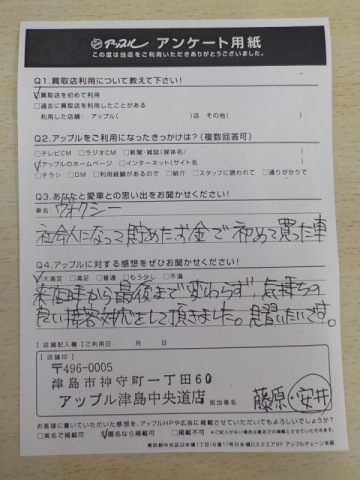 アップル アンケート用紙
この度は当店をご利用いただきありがとうございました。
Q1.買取店利用について教えて下さい!
買取店を初めて利用
□過去に買取店を利用したことがある
利用した店舗: アップル( )店 その他( )
Q2.アップルをご利用になったきっかけは?(複数回答可)
□テレビCM □ラジオCM □新聞・雑誌(媒体名/ )
アップルのホームページ □インターネット(サイト名 )
□チラシ □DM □利用経験があるので □紹介 □スタッフに誘われて □通りがかりで
Q3.あなたと愛車との思い出をお聞かせください!
車名: ヴォクシー
社会人になって貯めたお金で初めて買った車
Q4.アップルに対する感想をぜひお聞かせください!
大満足 □満足 □普通 □もう少し □不満
来店時から最後まで変わらず、気持ちの
良い接客対応をして頂きました。見習いたいです。
【店舗記入欄】ご利用日: 月 日
【店舗印】
〒496-0005
津島市神守町一丁目60
アップル津島中央道店
担当者名( 藤原・安井 )
お客様に書いていただいた感想を、アップルHPや広告に掲載させていただいてもよろしいでしょうか?
□実名で掲載可 匿名なら掲載可 □掲載不可 ※ご記入がない場合は匿名での掲載とさせていただきます。
東京都中央区日本橋1丁目16番11号日本橋DスクエアBF アップルチェーン本部